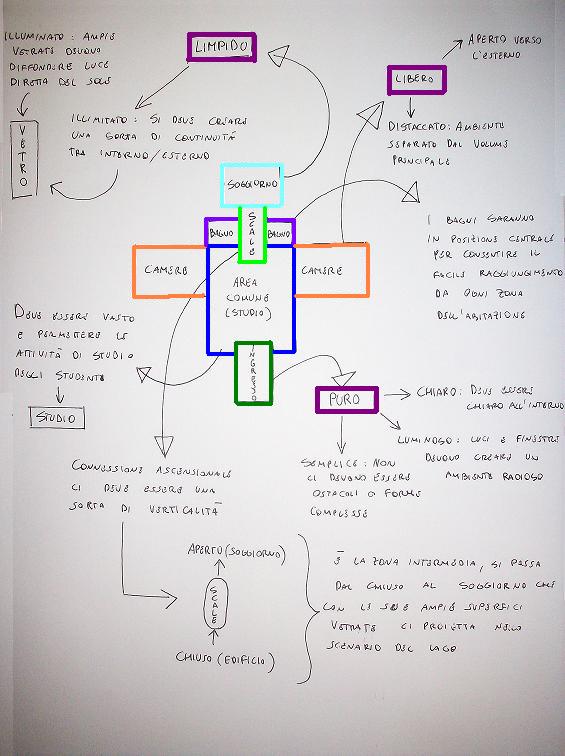 ILLUMINATO: AMPIE
VETRATE DEVONO
DIFFONDERE LUCE
DIRETTA DEL SOLE
VETRO
LIMPIDO
ILLIMITATO: SI DEVE CREARE
UNA SORTA DI CONTINUITÀ
TRA INTERNO/ESTERNO
LIBERO
APERTO VERSO
L'ESTERNO
DISTACCATO: AMBIENTE
SEPARATO DAL VOLUME
PRINCIPALE
SOGGIORNO
SCALE
BAGNO
BAGNO
CAMERE
AREA
COMUNE
(STUDIO)
CAMERE
INGRESSO
I BAGNI SARANNO
IN POSIZIONE CENTRALE
PER CONSENTIRE IL
FACILE RAGGIUNGIMENTO
DA OGNI ZONA
DELL'ABITAZIONE
DEVE ESSERE VASTO
E PERMETTERE LE
ATTIVITÀ DI STUDIO
DEGLI STUDENTI
STUDIO
PURO
CHIARO: DEVE ESSERE
CHIARO ALL'INTERNO
LUMINOSO: LUCI E FINESTRE
DEVONO CREARE UN
AMBIENTE RADIOSO
SEMPLICE: NON
CI DEVONO ESSERE
OSTACOLI O FORME
COMPLESSE
CONNESSIONE ASCENSIONALE
CI DEVE ESSERE UNA
SORTA DI VERTICALITÀ
APERTO (SOGGIORNO)
SCALE
CHIUSO (EDIFICIO)
È LA ZONA INTERMEDIA, SI PASSA
DAL CHIUSO AL SOGGIORNO CHE
CON LE SUE AMPIE SUPERFICI
VETRATE CI PROIETTA NELLO
SCENARIO DEL LAGO